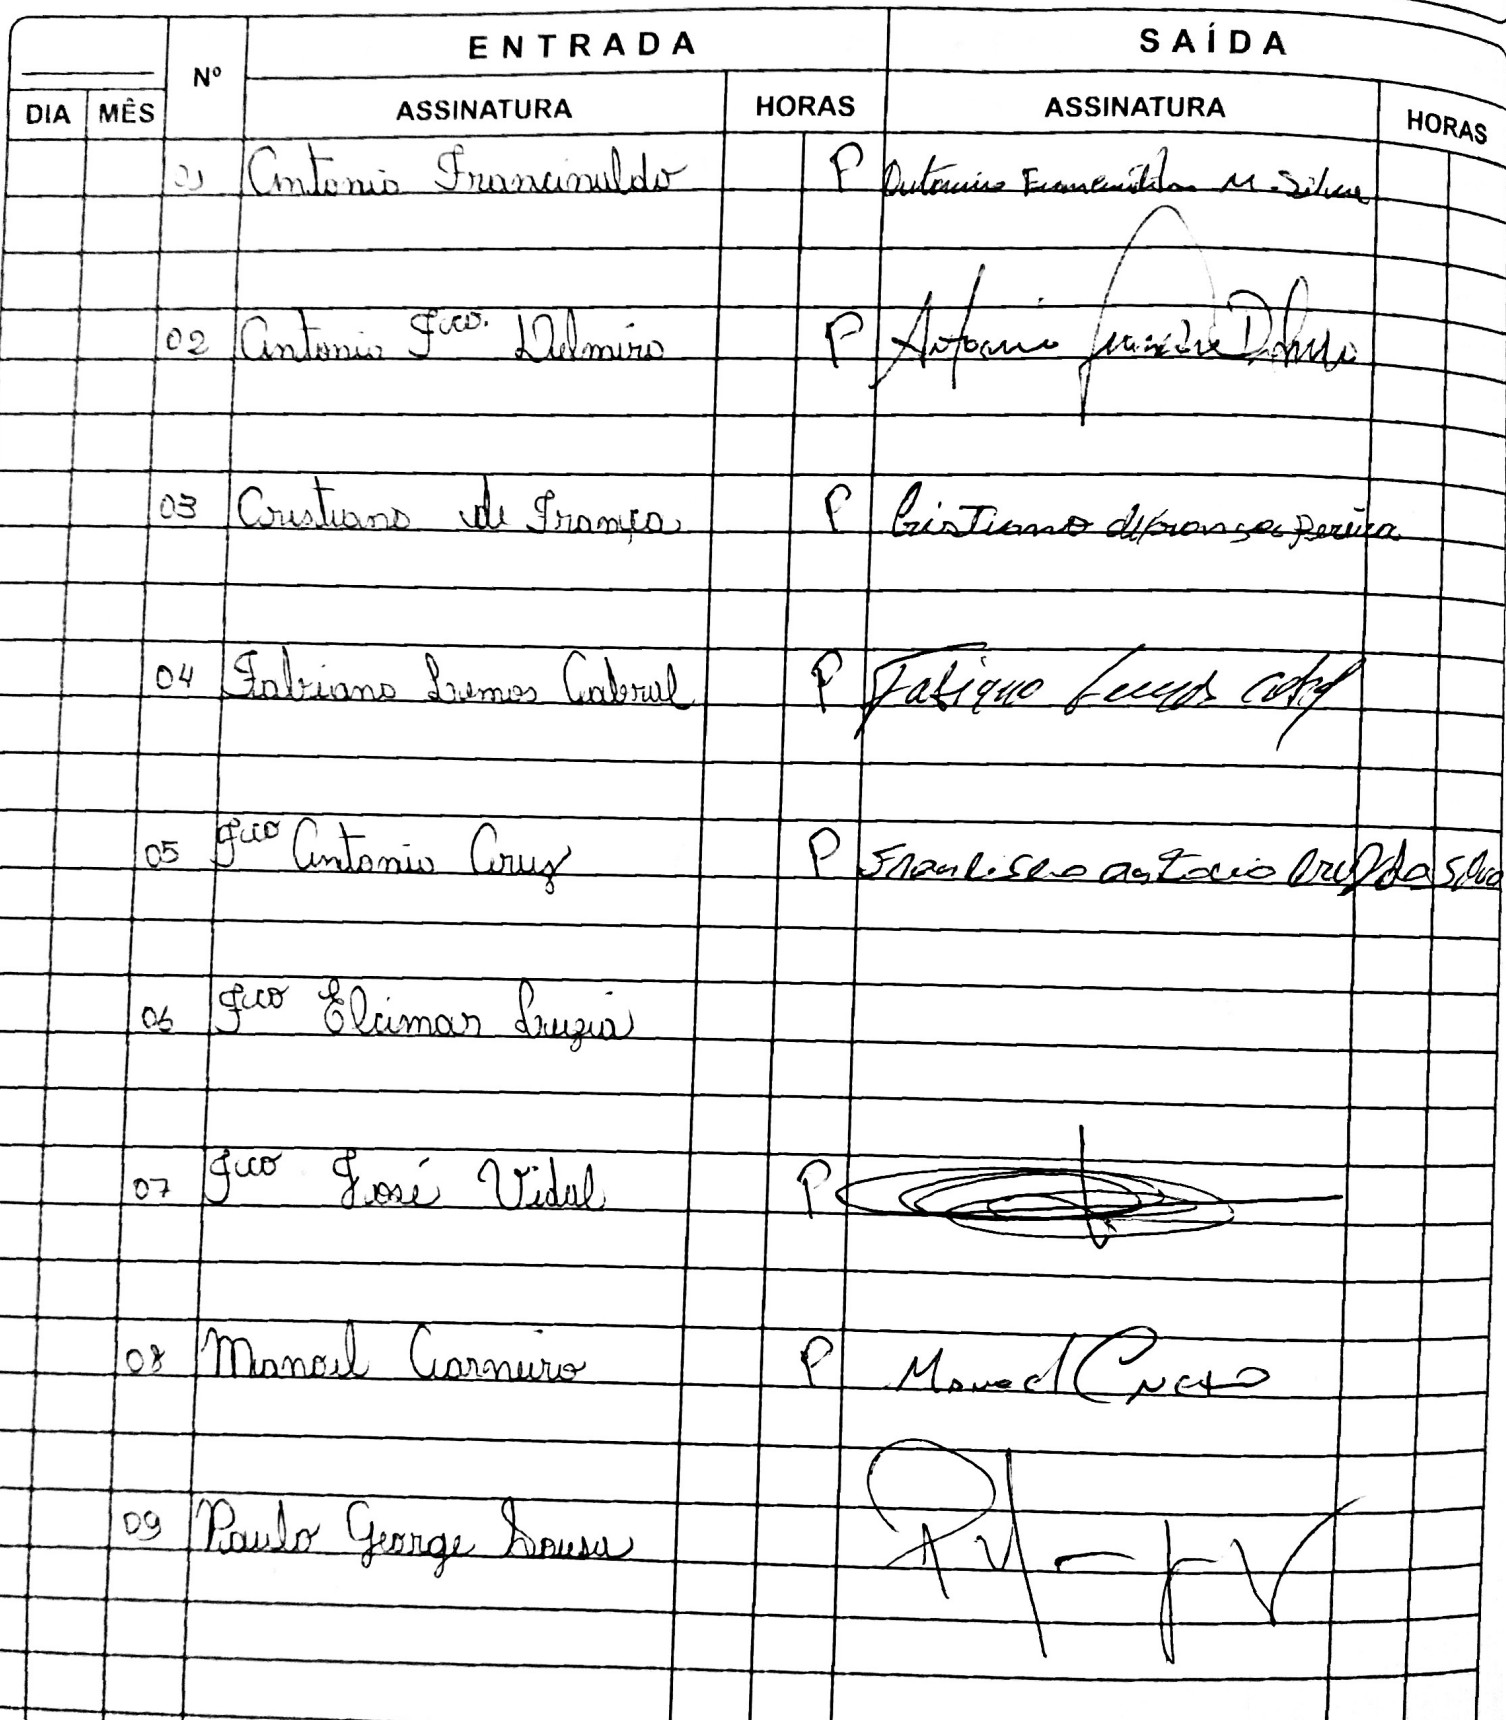 ENTRADA SAÍDA
Nº
DIA MÊS ASSINATURA HORAS ASSINATURA HORAS
01 Antonio Francinuldo P Antonio M. Silva
02 Antonio Fco. Delmiro P Antonio
03 Cristiano de França P Cristiano de França Pereira
04 Fabiano Lemos Cabral P Fabiano Lemos
05 Fco Antonio Cruz P Francisco Antonio Cruz da Silva
06 Fco Elcimar Luzia
07 Fco José Vidal P
08 Manoel Carneiro P Manoel
09 Paulo George Sousa